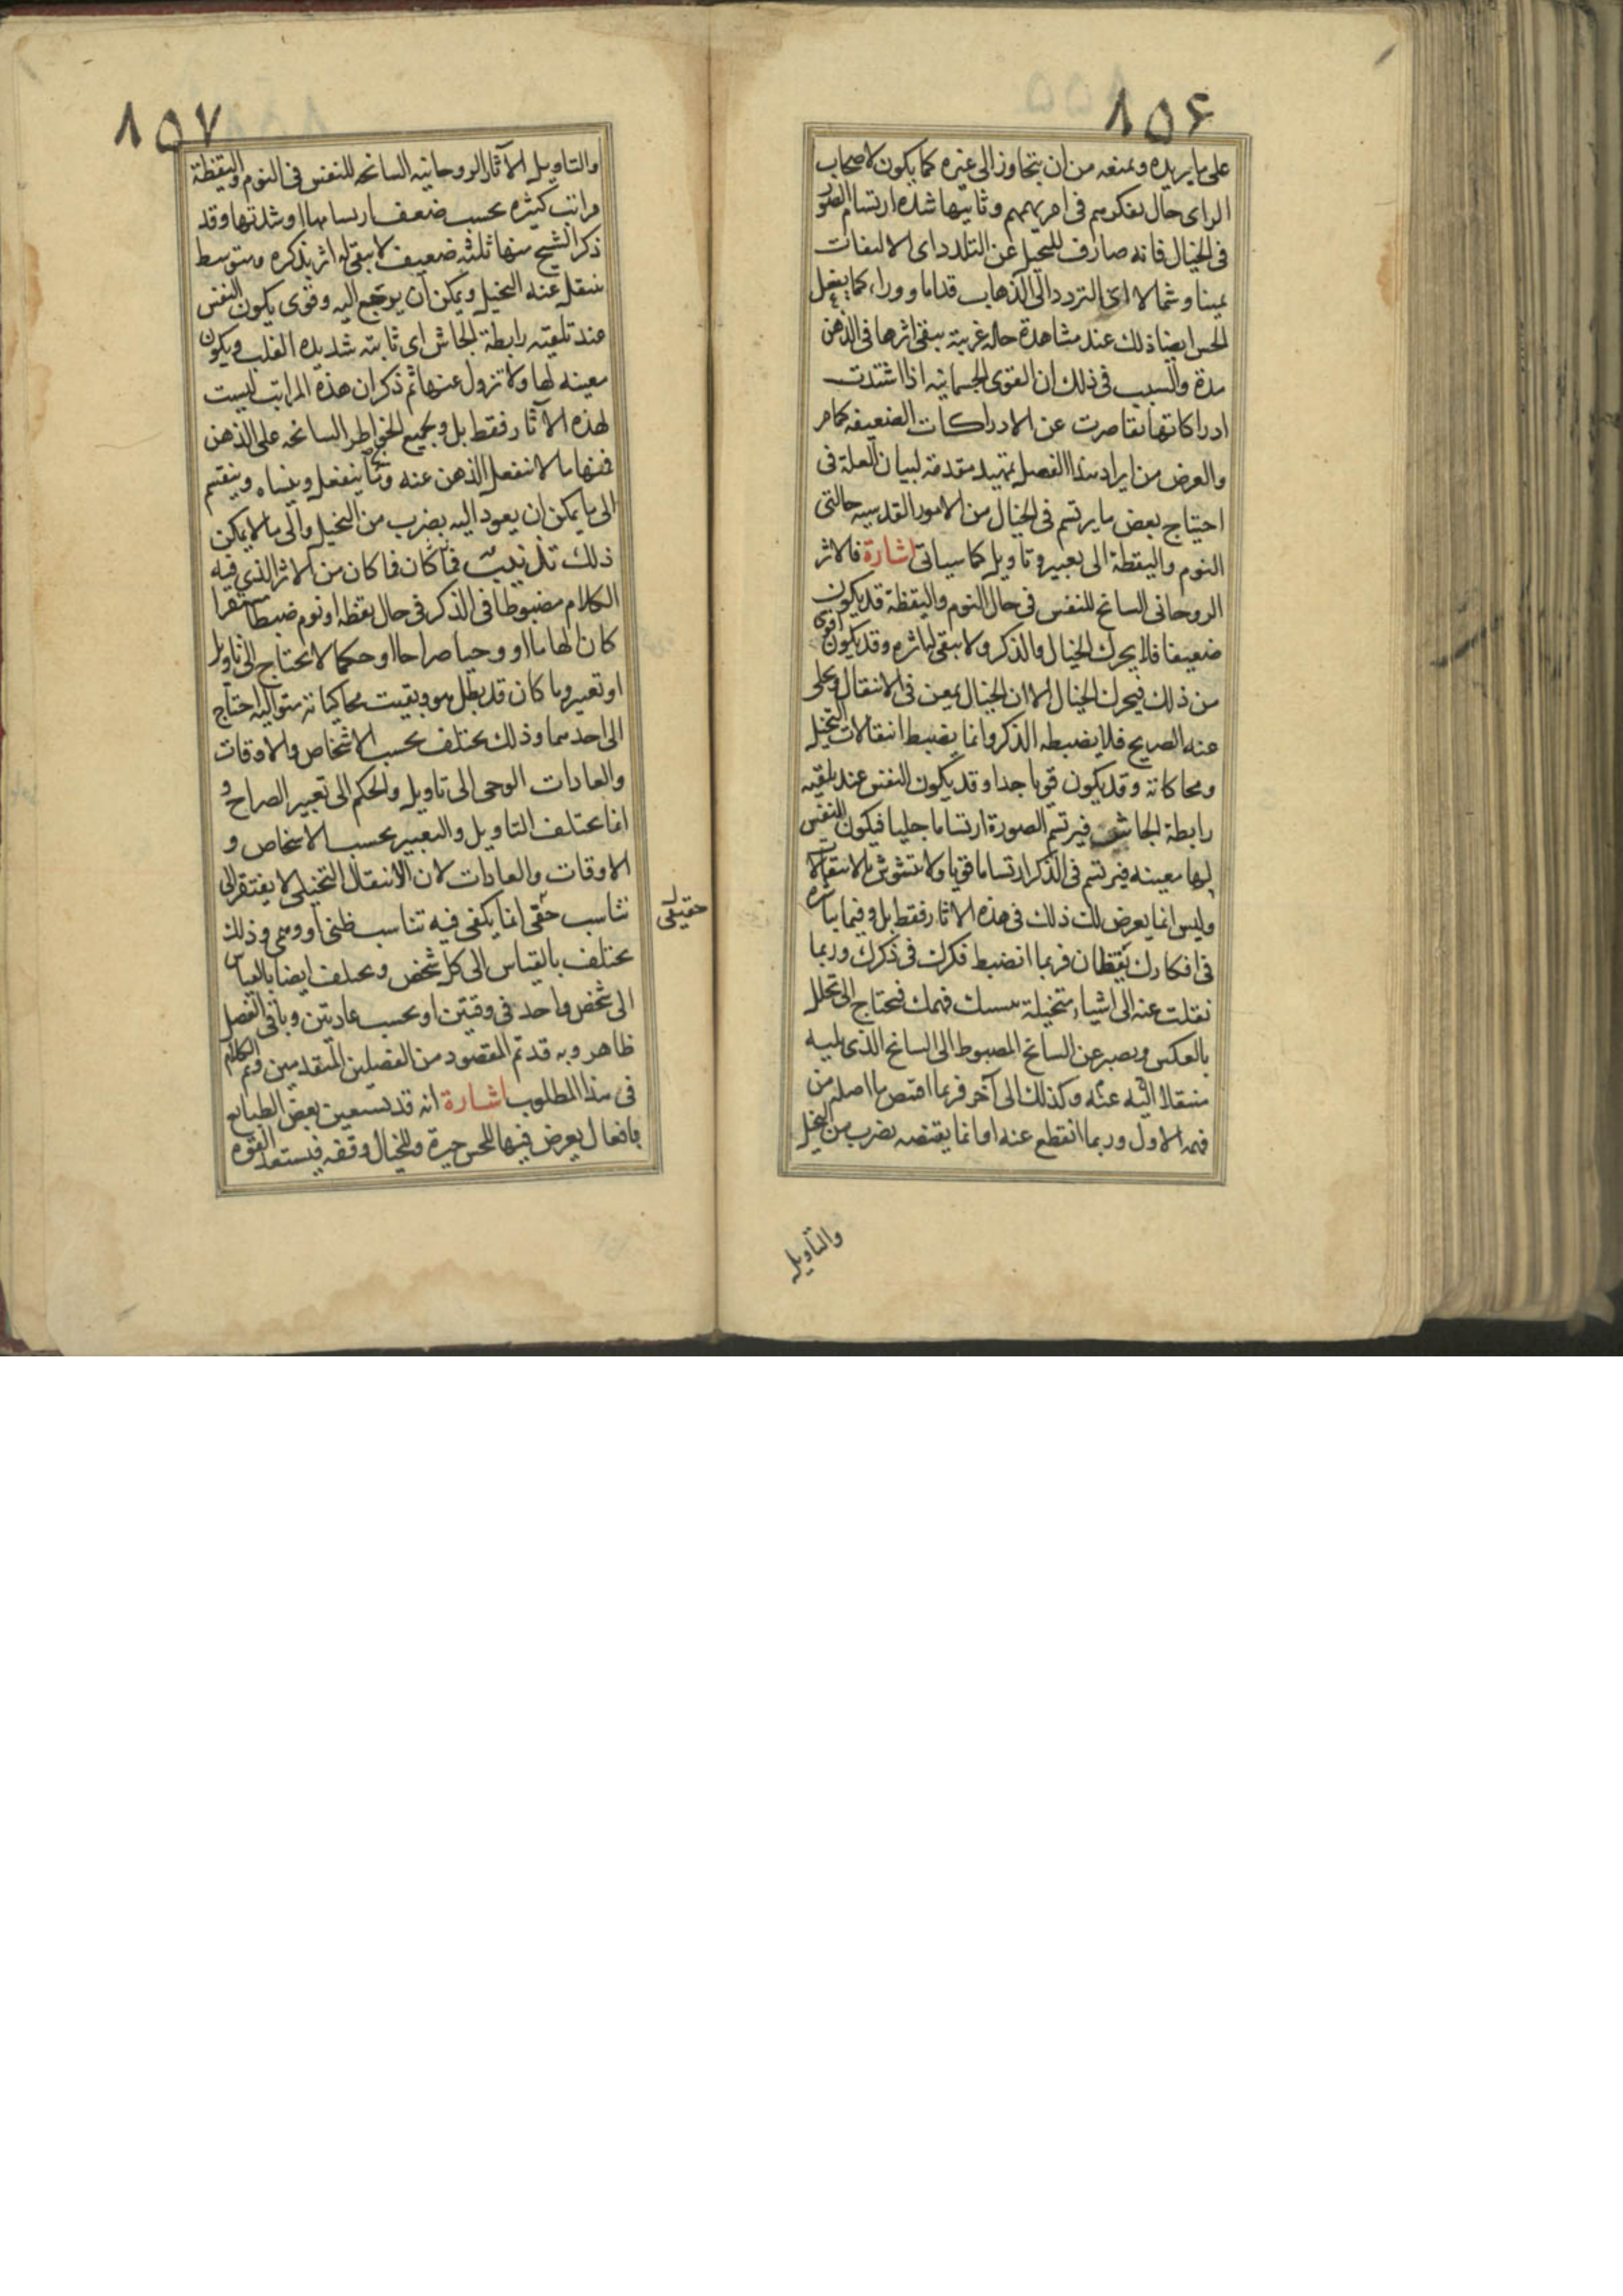 ٨٥۶
على ما يريده ويمنعه من ان يتجاوز الى غيره كما يكون لاصحاب
الراى حال تفكرهم فى امر يهمهم وثانيها شدة ارتسام الصور
فى الخيال فانه صارف للتخيل عن التلدد اى الالتفات
يمينا وشمالا اى التردد الى الذهاب قداما ووراء كما يفعل
الحس ايضا ذلك عند مشاهدة حالة غريبة يبقى اثرها فى الذهن
مدة والسبب فى ذلك ان القوى الجسمانيه اذا اشتدت
ادراكاتها تقاصرت عن الادراكات الضعيفه كما مر
والغرض من ايراد هذا الفصل تمهيد مقدمة لبيان العلة فى
احتياج بعض ما يرتسم فى الخيال من الامور القدسيه حالتى
النوم واليقظة الى تعبير وتاويل كما سياتى اشارة فالاثر
الروحانى السانح للنفس فى حال النوم واليقظة قد يكون
ضعيفا فلا يحرك الخيال والذكر ولا يبقى له اثر وقد يكون اقوى
من ذلك فيحرك الخيال الا ان الخيال يمعن فى الانتقال ويخلى
عنه الصريح فلا يضبطه الذكر وانما يضبط انتقالات التخيل
ومحاكاته وقد يكون قويا جدا وقد يكون النفس عند تلقيه
رابطة الجاش فيرتسم الصورة ارتساما جليا فيكون النفس
لها معينه فيرتسم فى الذكر ارتساما قويا ولا تتشوش بالانتقالات
وليس انما يعرض لك ذلك فى هذه الاثار فقط بل وفيما تباشره
فى افكارك يقظان فربما انضبط فكرك فى ذكرك وربما
نقلت عنه الى اشياء متخيلة تنسيك مهمك فتحتاج الى تحلل
بالعكس وتصير عن السانح المضبوط الى السانح الذى يليه
منتقلا اليه عنه وكذلك الى آخر فربما اقتص ما اضله من
مهمه الاول وربما انقطع عنه اوانما يقتنصه بضرب من التحلل
والتاويل
٨٥٧
والتاويل الآثار الروحانيه السانحه للنفس فى النوم واليقظة
مراتب كثيره بحسب ضعف ارتسامها او شدتها وقد
ذكر الشيخ منها ثلثه ضعيف لا يبقى له اثر بذكره ومتوسط
ينتقل عنه التخيل ويمكن ان يرجع اليه وقوى يكون النفس
عند تلقيه رابطة الجاش اى ثابته شديده القلب ويكون
معينه لها ولا تزول عنها ثم ذكر ان هذه المراتب ليست
لهذه الآثار فقط بل وبجميع الخواطر السانحه على الذهن
فمنها ما لا ينفعل الذهن عنه ومنها ما ينفعل وينساه وينقسم
الى ما يمكن ان يعود اليه بضرب من التحيل والى ما لا يمكن
ذلك تذنيب فما كان من الاثر الذى فيه
الكلام مضبوطا فى الذكر فى حال يقظه او نوم ضبطا مستقرا
كان الهاما او وحيا صراحا او حكما لا يحتاج الى تاويل
او تعبير وما كان قد بطل هو وبقيت محاكياته متواليه احتاج
الى احدهما وذلك يختلف بحسب الاشخاص والاوقات
والعادات الوحى الى تاويل والحكم الى تعبير الصراح و
انما يختلف التاويل والتعبير بحسب الاشخاص و
الاوقات والعادات لان الانتقال التخيلى لا يفتقر الى
تناسب حقى انما يكفى فيه تناسب ظنى او وهمى وذلك
حقيقى
يختلف بالقياس الى كل شخص ويختلف ايضا بالقياس
الى شخص واحد فى وقتين او بحسب عادتين وباقى الفصل
ظاهر وبه قد تم المقصود من الفصلين المتقدمين وتم الكلام
فى هذا المطلوب اشارة انه قد يستعين بعض الطبايع
بافعال يعرض فيها للحس حيرة وللخيال وقفه فيستعد القوه